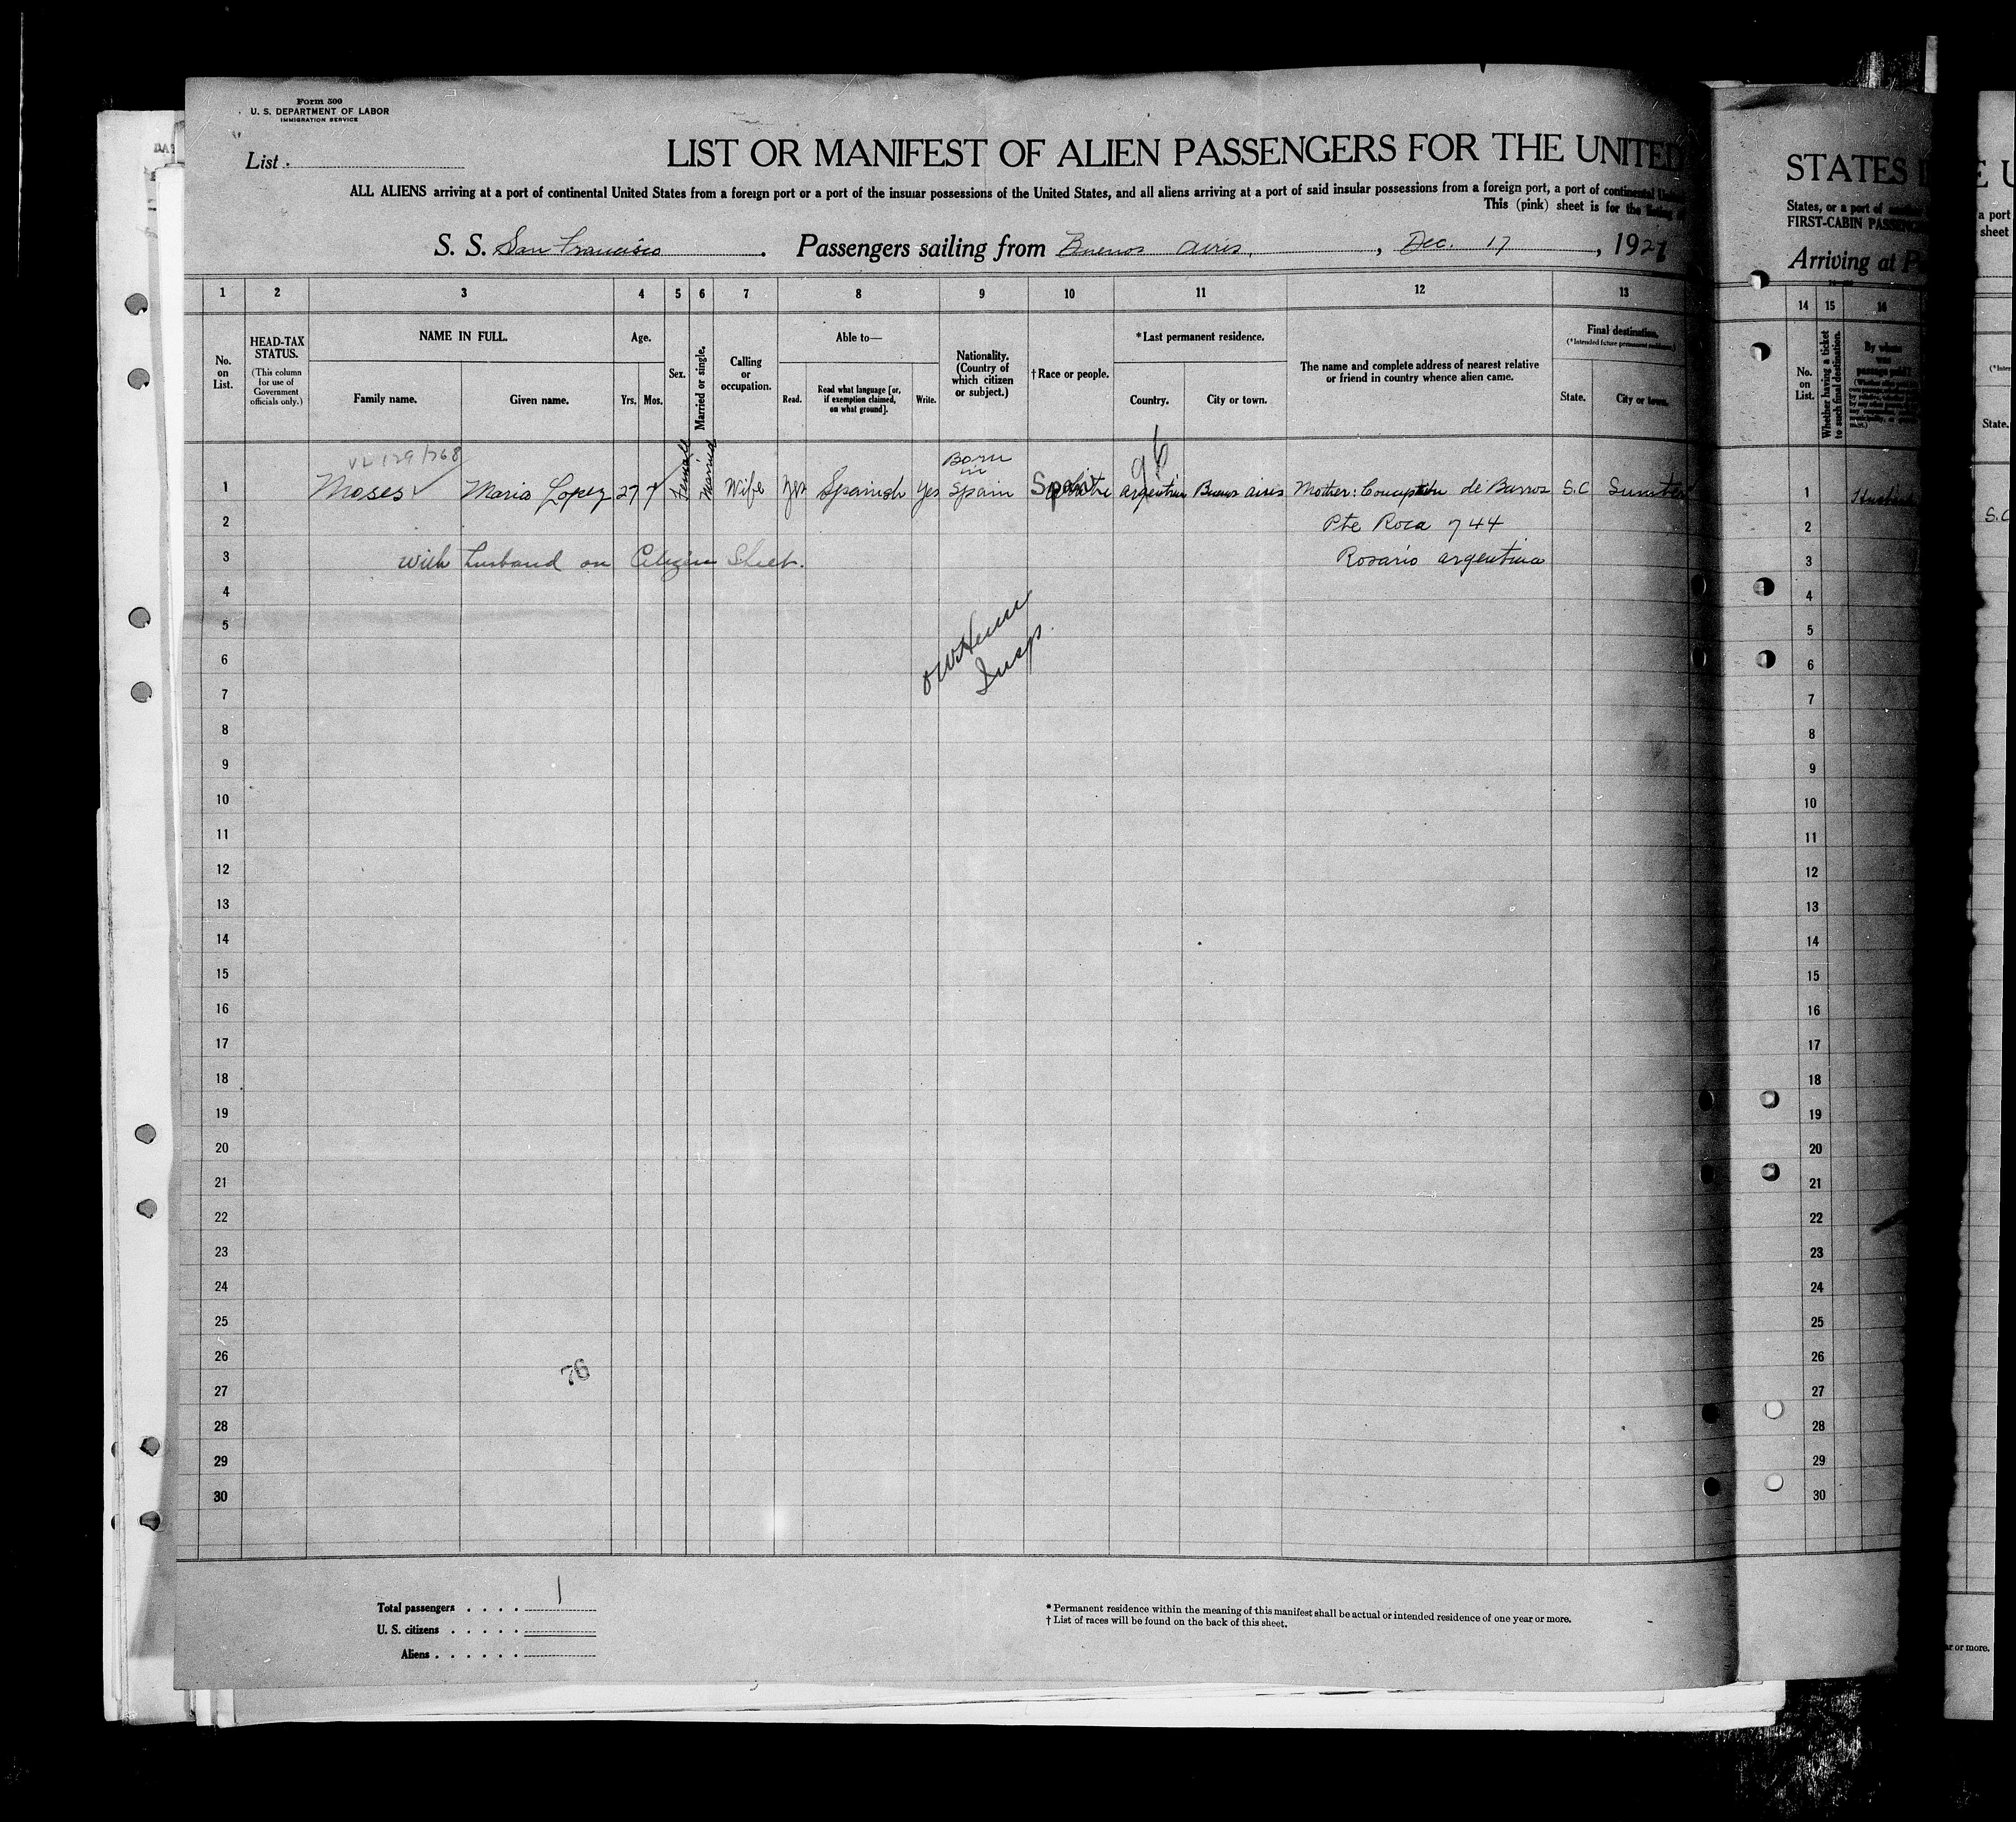 Form 500
U. S. DEPARTMENT OF LABOR
IMMIGRATION SERVICE
List
LIST OR MANIFEST OF ALIEN PASSENGERS FOR THE UNITED
ALL ALIENS arriving at a port of continental United States from a foreign port or a port of the insular possessions of the United States, and all aliens arriving at a port of said insular possessions from a foreign port, a port of continental United
This (pink) sheet is for the listing of
S. S. San Francisco. Passengers sailing from Buenos Aires, Dec. 17, 1921
1 2 3 4 5 6 7 8 9 10 11 12 13
No. on List.
HEAD-TAX STATUS.
(This column for use of Government officials only.)
NAME IN FULL.
Family name. Given name.
Age.
Yrs. Mos.
Sex.
Married or single.
Calling or occupation.
Able to—
Read. Read what language [or, if exemption claimed, on what ground]. Write.
Nationality. (Country of which citizen or subject.)
†Race or people.
*Last permanent residence.
Country. City or town.
The name and complete address of nearest relative or friend in country whence alien came.
Final destination.
(*Intended future permanent residence.)
State. City or town.
96
Born in
1 Moses Maria Lopez 27 7 Female Married Wife Yes Spanish Yes Spain Spain Argentina Buenos Aires Mother: de Barros S.C Sumter
2 Pte Roca 744
3 with husband on Citizen Sheet. Rosario Argentina
4
5
6
Insp.
7
8
9
10
11
12
13
14
15
16
17
18
19
20
21
22
23
24
25
26
76
27
28
29
30
Total passengers 1
U. S. citizens
Aliens
* Permanent residence within the meaning of this manifest shall be actual or intended residence of one year or more.
† List of races will be found on the back of this sheet.
STATES
States, or a port of
FIRST-CABIN PASSENG
Arriving at P
14 15 16
No. on List.
Whether having a ticket to such final destination.
By whom was passage paid?
1 Husband
2
3
4
5
6
7
8
9
10
11
12
13
14
15
16
17
18
19
20
21
22
23
24
25
26
27
28
29
30
E U
a port
sheet
State.
S.C
ar or more.